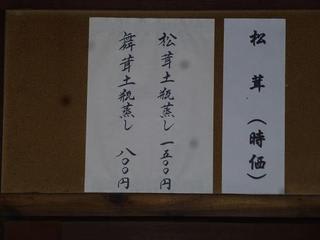 松茸（時価）
松茸土瓶蒸し 一五〇〇円
舞茸土瓶蒸し 八〇〇円